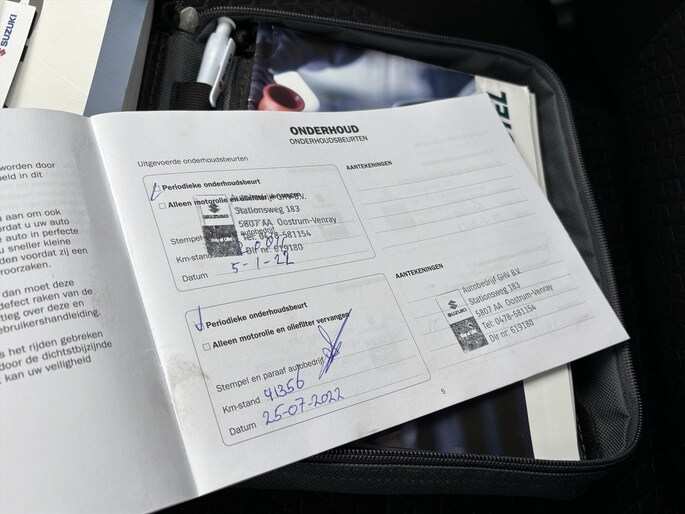 SUZUKI
TEL
worden door
eld in dit
aan om ook
ordat u uw auto
e auto in perfecte
u sneller kleine
den voordat zij een
roorzaken.
dan moet deze
defect raken van de
tleg over deze en
ebruikershandleiding.
s het rijden gebreken
door de dichtstbijzijnde
kan uw veiligheid
ONDERHOUD
ONDERHOUDSBEURTEN
Uitgevoerde onderhoudsbeurten
Periodieke onderhoudsbeurt
Alleen motorolie en oliefilter vervangen
Autobedrijf GHV B.V.
Stationsweg 183
5807 AA Oostrum-Venray
Tel: 0478-581154
Dir nr: 619180
SUZUKI
Stempel autobedrijf
Km-stand
Datum 5-1-22
AANTEKENINGEN
Periodieke onderhoudsbeurt
Alleen motorolie en oliefilter vervangen
Stempel en paraaf autobedrijf
Km-stand 41356
Datum 25-07-2022
AANTEKENINGEN
Autobedrijf GHV B.V.
Stationsweg 183
5807 AA Oostrum-Venray
Tel: 0478-581154
Dir nr: 619180
SUZUKI
9